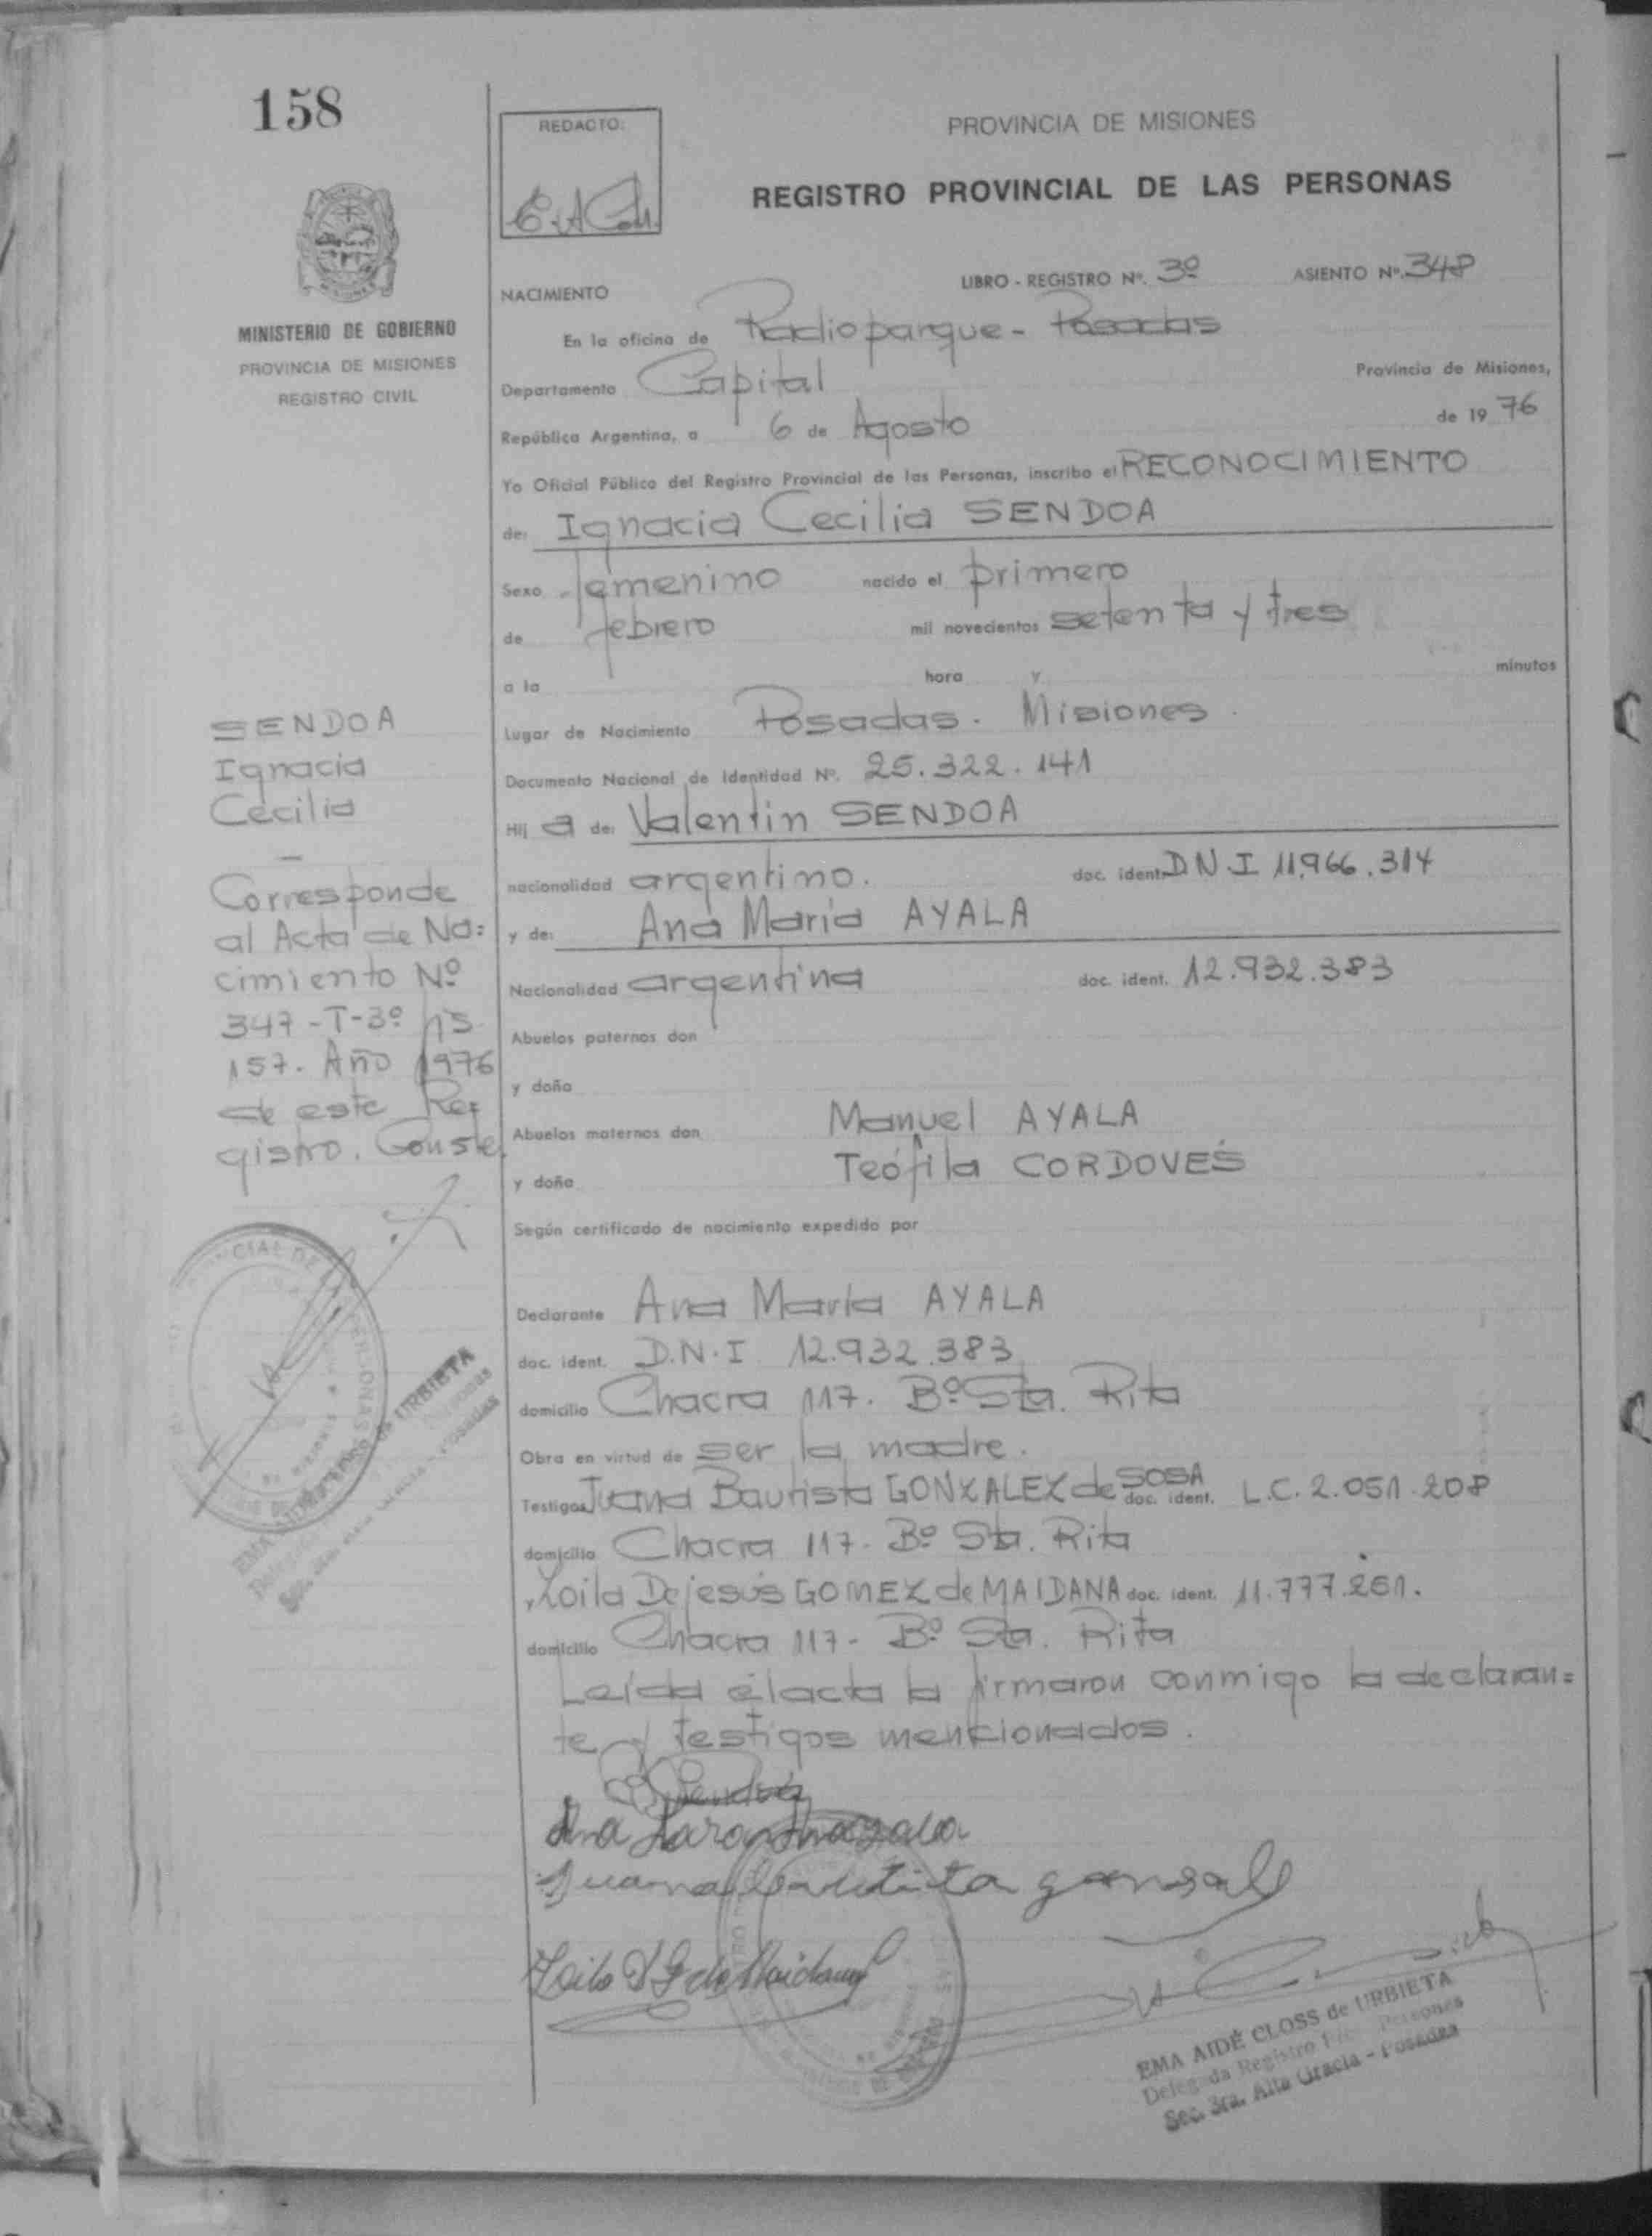 158
REDACTO:
PROVINCIA DE MISIONES
REGISTRO PROVINCIAL DE LAS PERSONAS
MINISTERIO DE GOBIERNO
PROVINCIA DE MISIONES
REGISTRO CIVIL
LIBRO - REGISTRO Nº. 3º ASIENTO Nº. 348
NACIMIENTO
En la oficina de Radioparque - Posadas
Departamento Capital Provincia de Misiones,
República Argentina, a 6 de Agosto de 19 76
Yo Oficial Público del Registro Provincial de las Personas, inscribo el RECONOCIMIENTO
de: Ignacia Cecilia SENDOA
Sexo femenino nacido el primero
de febrero mil novecientos setenta y tres
a la hora y minutos
Lugar de Nacimiento Posadas. Misiones.
Documento Nacional de Identidad Nº. 25.322.141
Hij a de: Valentin SENDOA
nacionalidad argentino. doc. ident. D.N.I 11.966.314
y de: Ana Maria AYALA
Nacionalidad argentina doc. ident. 12.932.383
Abuelos paternos don
y doña
Abuelos maternos don Manuel AYALA
y doña Teófila CORDOVES
Según certificado de nacimiento expedido por
Declarante Ana María AYALA
doc. ident. D.N.I 12.932.383
domicilio Chacra 117. Bº Sta. Rita
Obra en virtud de ser la madre.
Testigos Juana Bautista GONZALEZ de SOSA doc. ident. L.C. 2.051.208
domicilio Chacra 117. Bº Sta. Rita
y Zoila Dejesús GOMEZ de MAIDANA doc. ident. 11.777.251.
domicilio Chacra 117- Bº Sta. Rita
Leída el acta la firmaron conmigo la declaran=
te y testigos mencionados.
SENDOA
Ignacia
Cecilia
Corresponde
al Acta de Na=
cimiento Nº
347-T-3º
157. Año 1976
de este Re=
gistro. Conste.
URBIETA
Juana Bautista gonsale
Zoila D G de Maidana
EMA AIDÉ CLOSS de URBIETA
Delegada Registro Personas
Sec. 3ra. Alta Gracia - Posadas